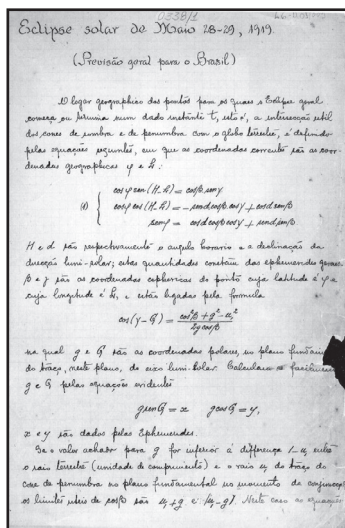 0338/1
Eclipse solar de Maio 28-29, 1919.
(Previsão geral para o Brasil)
O logar geographico dos pontos para os quaes o Eclipse geral
começa ou termina num dado instante t, isto é, a intersecção util
dos cones de sombra e de penumbra com o globo terrestre, é definido
pelas equações seguintes, em que as coordenadas correntes são as coor-
denadas geographicas φ e L:
cosφ sen(H-L) = cosβ senγ
(1) cosφ cos(H-L) = -send cosβ cosγ + cosd senβ
senφ = cosd cosβ cosγ + send senβ
H e d são respectivamente o angulo horario e a declinação da
direcção luni-solar; estas quantidades constam das ephemerides geraes.
β e γ são as coordenadas esphericas do ponto cuja latitude é φ e
cuja longitude é L, e estão ligadas pela formula
cos(γ-G) = cos²β + g² - u₁² / 2g cosβ
na qual g e G são as coordenadas polares, no plano fundam
do traço, neste plano, do eixo luni-solar. Calculam-se facilmen
g e G pelas equações evidentes
g senG = x g cosG = y,
x e y são dados pelas Ephemerides.
Se o valor achado para g for inferior á differença 1-u₁ entre
o raio terrestre (unidade de comprimento) e o raio u₁ do traço do
cone de penumbra no plano fundamental no momento da conjuncção
os limites uteis de cosβ são u₁+g e (u₁-g). Neste caso as equações